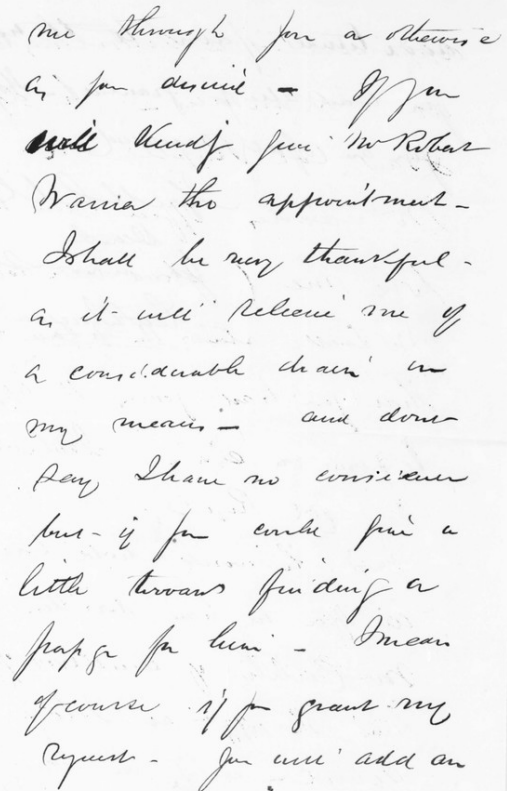 me through you or otherwise
as you desire — If you
will kindly give Mr Robert
the appointment —
I shall be very thankful —
as it will relieve me of
a considerable drain on
my means — and dont
say I have no
but — if you could give a
little towards finding a
for him — I mean
of course if you grant my
request — you will add an